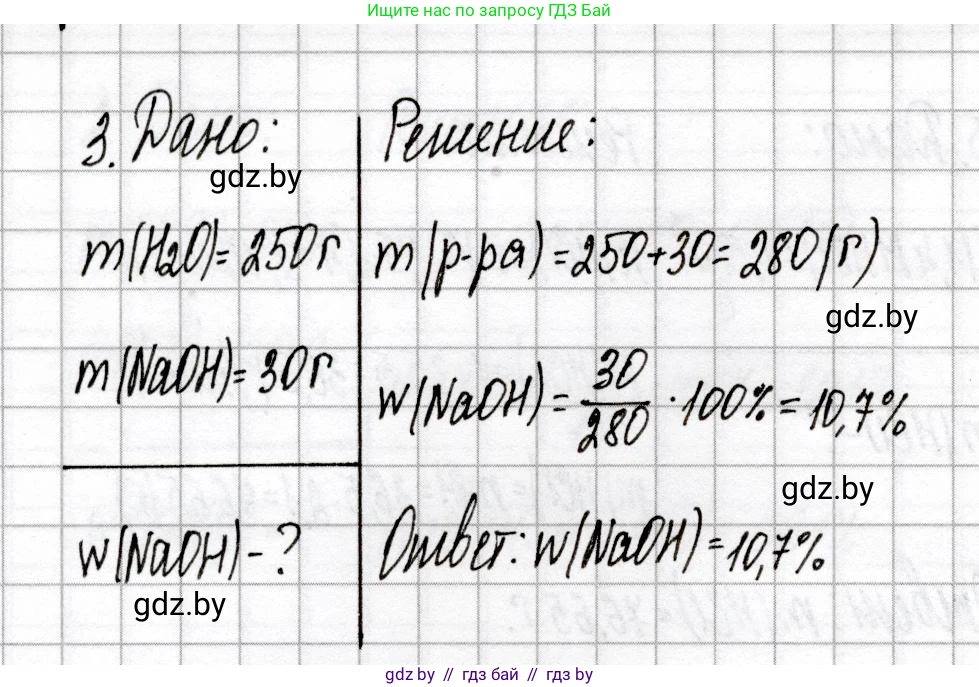 Ищите нас по запросу ГДЗ Бай
3. Дано:
gdz.by
m(H2O)=250г
m(NaOH)=30г
w(NaOH)-?
gdz.by
Решение:
m(р-ра)=250+30=280(г)
gdz.by
w(NaOH)=30/280·100%=10,7%
gdz.by
Ответ: w(NaOH)=10,7%
gdz.by // гдз бай // гдз by